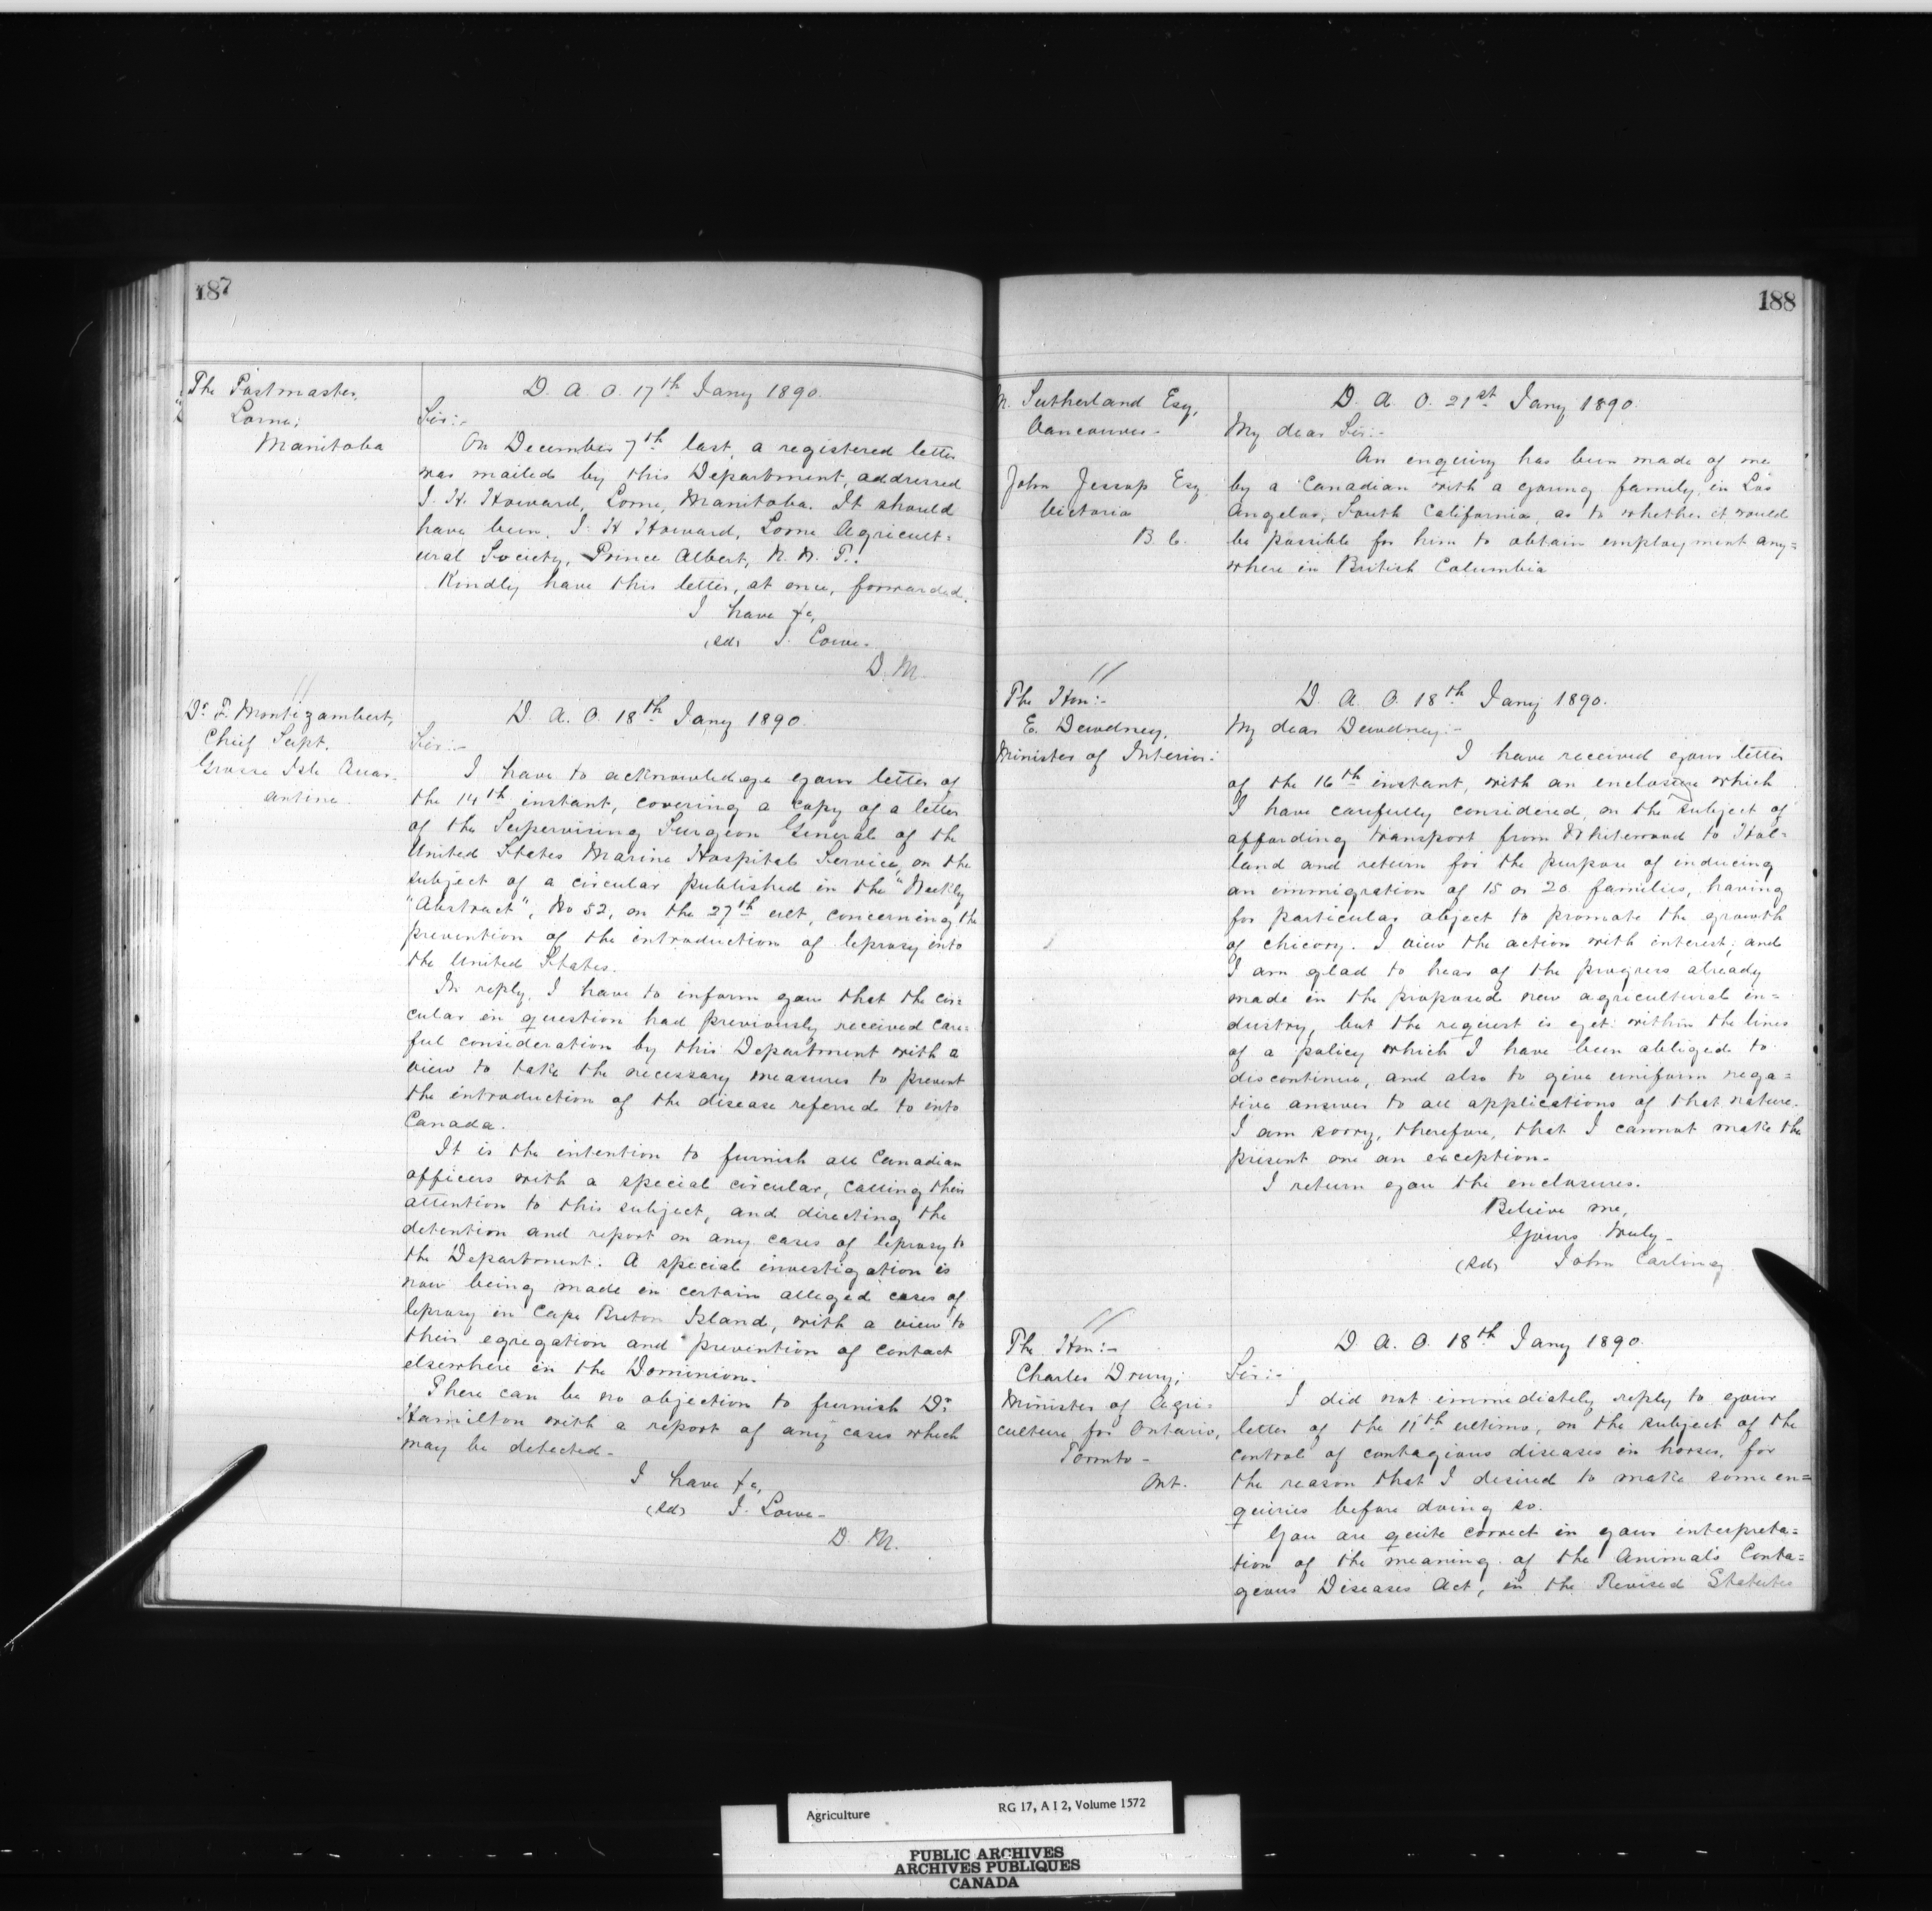 187
The Postmaster,
Lorne,
Manitoba
D. A. O. 17th Jany 1890.
Sir:-
On December 7th last, a registered letter
was mailed by this Department, addressed
J. H. Howard, Lorne, Manitoba. It should
have been, J. H Howard, Lorne Agricult=
ural Society, Prince Albert, N. W. T.!
Kindly have this letter, at once, forwarded.
I have &c,
(sd) J. Lowe-
D. M.
//
Dr. F. Montizambert,
Chief Supt.
Grosse Isle Quar-
antine.
D. A. O. 18th Jany 1890.
Sir:-
I have to acknowledge your letter of
the 14th instant, covering a copy of a letter
of the Supervising Surgeon General of the
United States Marine Hospital Service, on the
subject of a circular published in the "Weekly
"Abstract", No 52, on the 27th ult, concerning the
prevention of the introduction of leprosy into
the United States.
In reply, I have to inform you that the cir=
cular in question had previously received care=
ful consideration by this Department with a
view to take the necessary measures to prevent
the introduction of the disease referred to into
Canada.
It is the intention to furnish all Canadian
officers with a special circular, calling their
attention to this subject, and directing the
detention and report on any cases of leprosy to
the Department. A special investigation is
now being made in certain alleged cases of
leprosy in Cape Breton Island, with a view to
their egregation and prevention of contact
elsewhere in the Dominion.
There can be no objection to furnish Dr.
Hamilton with a report of any cases which
may be detected-
I have &c,
(sd) J. Lowe-
D. M.
188
Sutherland Esq,
Vancouver-
John Jessop Esq
Victoria
B. C.
D. A. O. 21st Jany 1890.
My dear Sir:-
An enquiry has been made of me
by a Canadian with a young family, in Los
Angelos, South California, as to whether it would
be possible for him to obtain employment any=
where in British Columbia
//
The Hon:-
E. Dewdney,
Minister of Interior:
D. A. O. 18th Jany 1890.
My dear Dewdney:-
I have received your letter
of the 16th instant, with an enclosure which
I have carefully considered, on the subject of
affording transport from Whitewood to Hol=
land and return for the purpose of inducing
an immigration of 15 or 20 families, having
for particular object to promote the growth
of chicory. I view the action with interest, and
I am glad to hear of the progress already
made in the proposed new agricultural in=
dustry, but the request is yet within the lines
of a policy which I have been obliged to
discontinue, and also to give uniform nega=
tive answer to all applications of that nature.
I am sorry, therefore, that I cannot make the
present one an exception.
I return you the enclosures.
Believe me,
Yours truly-
(sd) John Carling
//
The Hon:-
Charles Drury,
Minister of Agri=
culture for Ontario,
Toronto-
Ont.
D. A. O. 18th Jany 1890.
Sir:-
I did not immediately reply to your
letter of the 11th ultimo, on the subject of the
control of contagious diseases in horses, for
the reason that I desired to make some en=
quiries before doing so.
You are quite correct in your interpreta=
tion of the meaning of the Animals Conta=
geous Diseases Act, in the Revised Statutes
Agriculture RG 17, A I 2, Volume 1572
PUBLIC ARCHIVES
ARCHIVES PUBLIQUES
CANADA